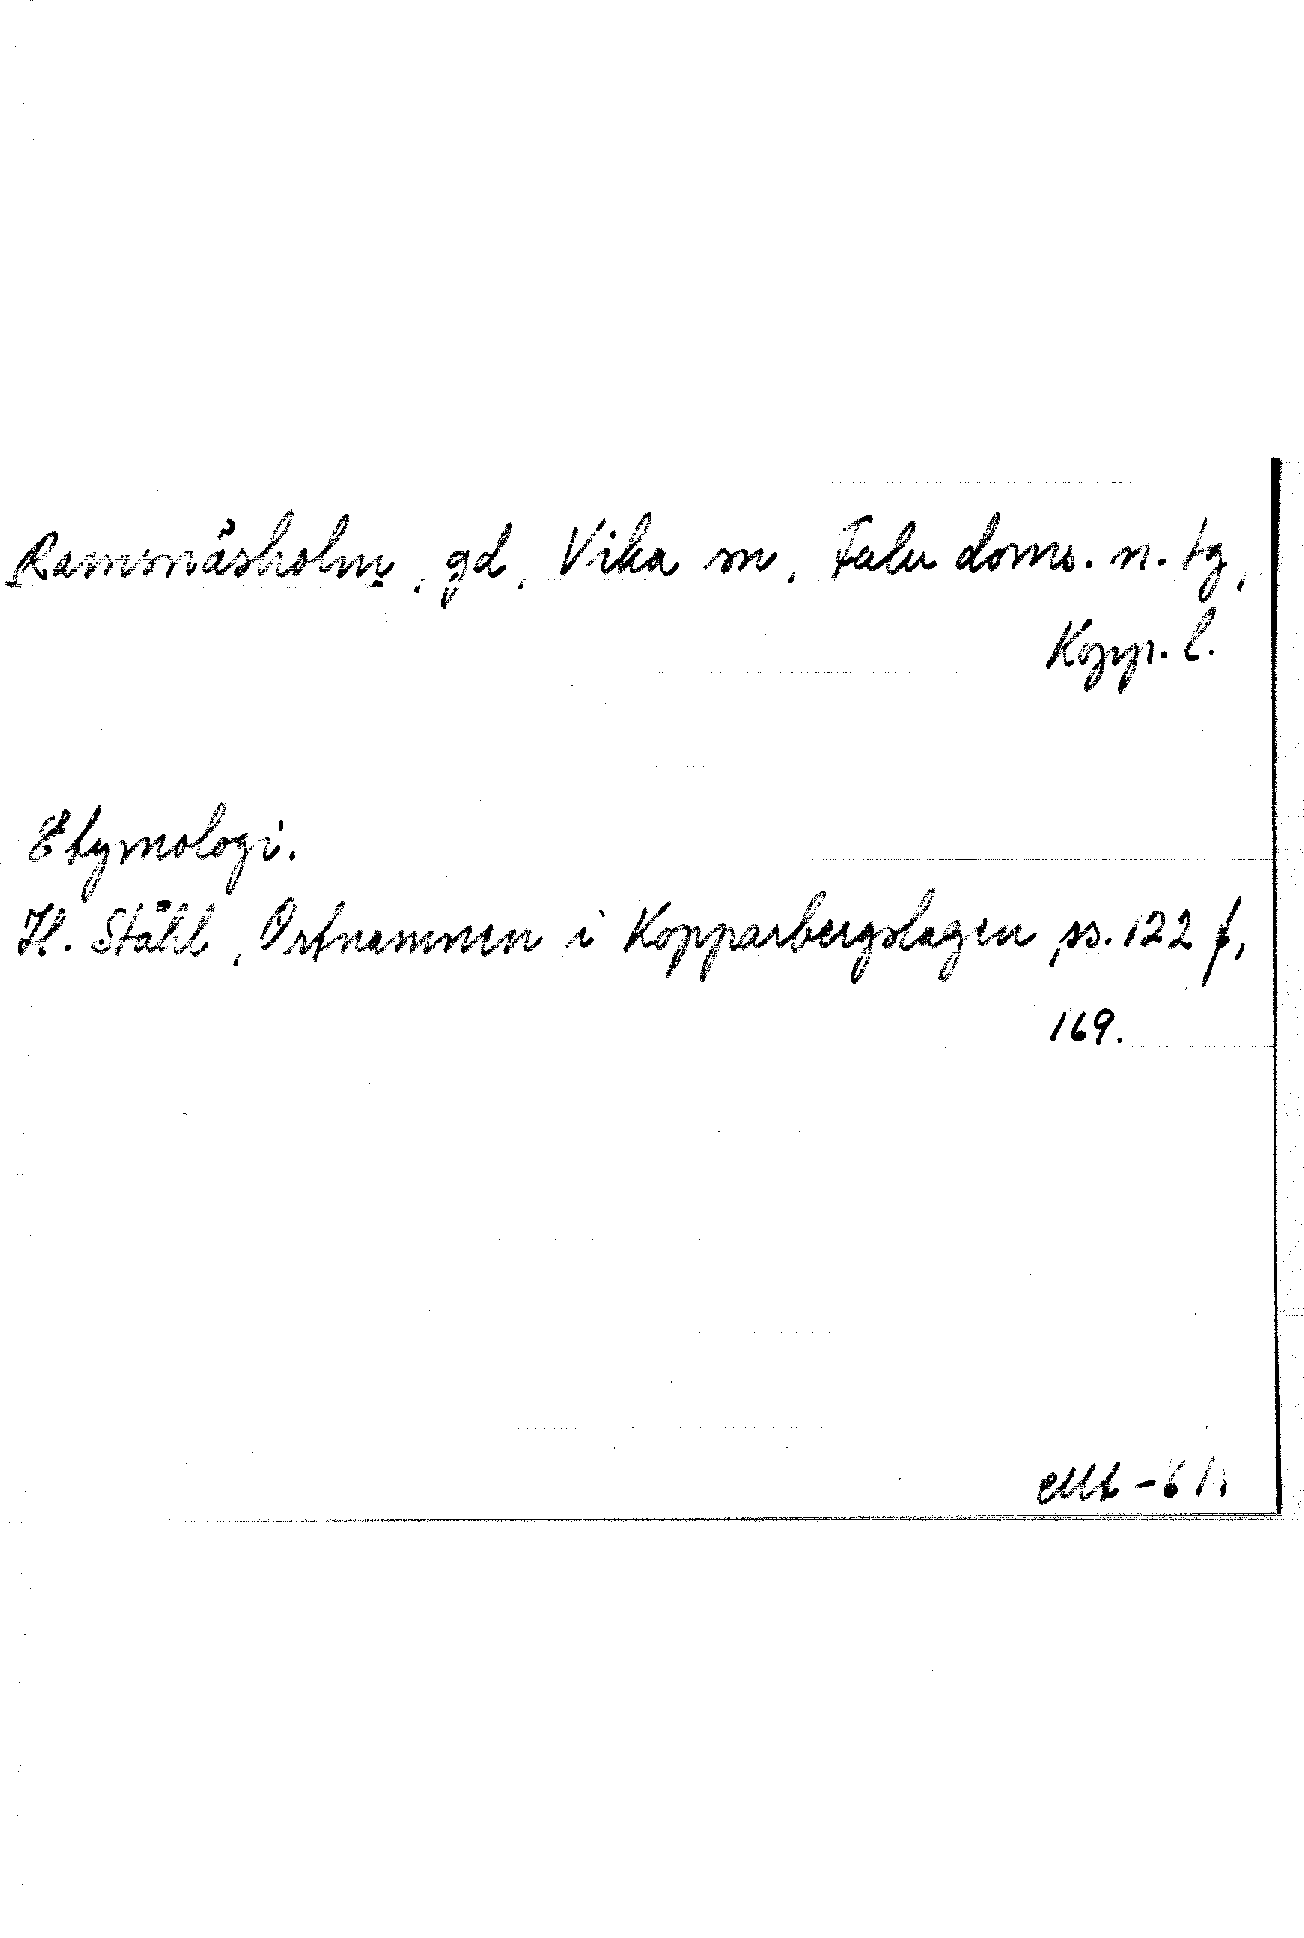 Ramsnäsholm, gd, Vika sn, Falu doms. n. tg,
Kopp. l.
Etymologi.
H. Ståhl, Ortnamnen i Kopparbergslagen, ss. 122 f,
169.